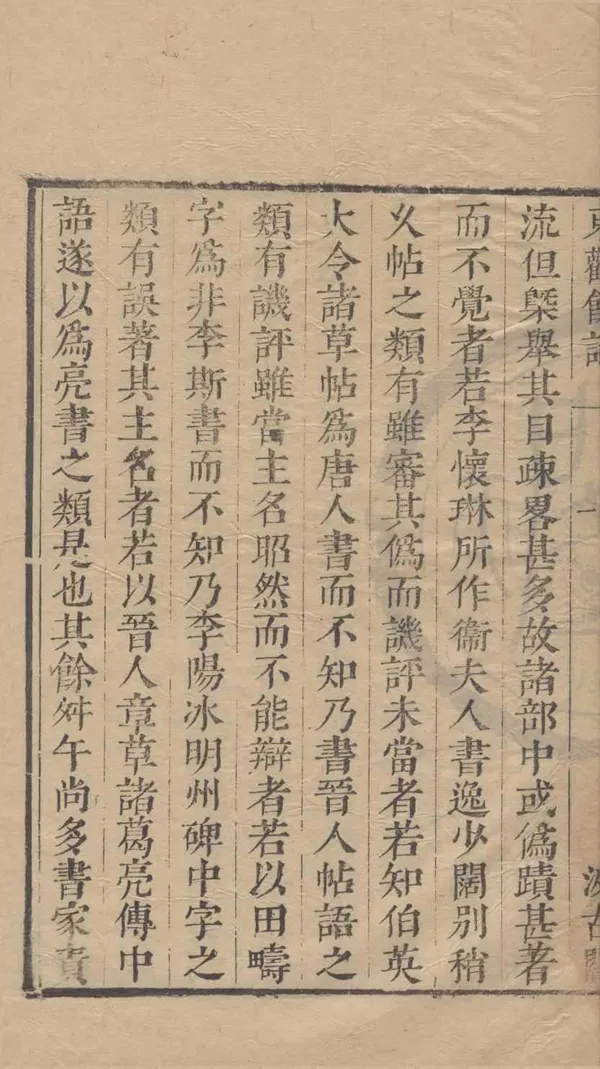 東觀餘論
一
汲古閣
流但槩舉其目疎畧甚多故諸部中或僞蹟甚著
而不覺者若李懷琳所作衞夫人書逸少闊別稍
久帖之類有雖審其僞而譏評未當者若知伯英
大令諸草帖爲唐人書而不知乃書晉人帖語之
類有譏評雖當主名昭然而不能辯者若以田疇
字爲非李斯書而不知乃李陽冰明州碑中字之
類有誤著其主名者若以晉人章草諸葛亮傳中
語遂以爲亮書之類是也其餘舛午尚多書家責